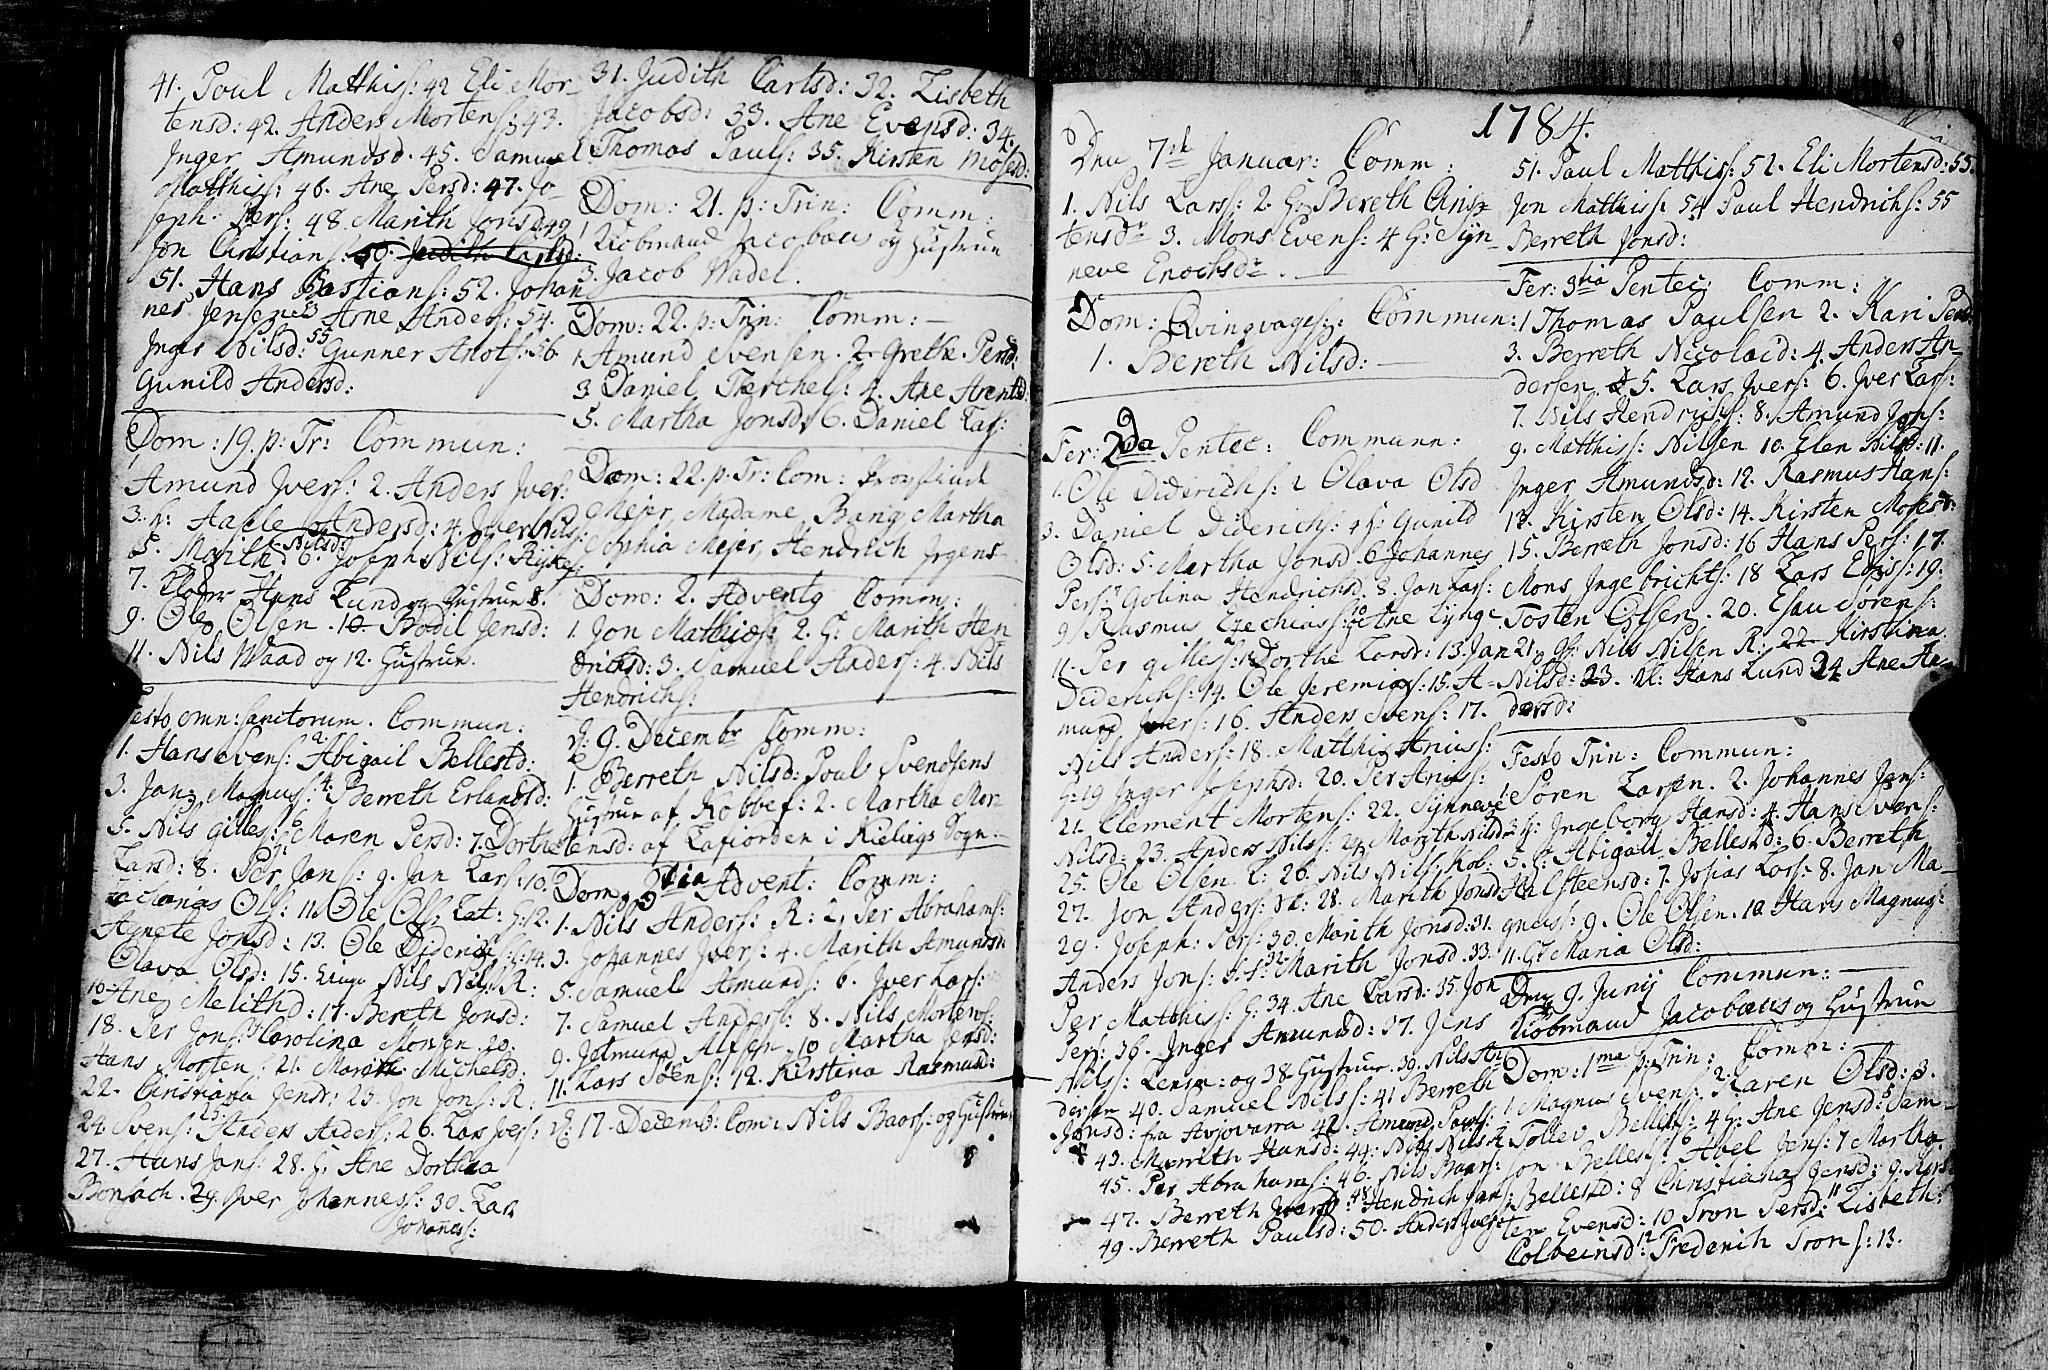 41. Poul Matthis: 42 Eli Mor-
tensd: 42. Anders Mortens: 43.
Inger Amundsd. 45. Samuel
Matthis: 46. Ane Persd: 47. Jo-
seph Pers: 48 Marith Jonsd: 49
Jon Christians: 50. Judith Carlsd:
51. Hans Bastians: 52. Johan
nes Jensen 53 Arne Anders: 54.
Inger Nilsd: 55 Gunner Arots: 56
Gunild Andersd:
Dom: 19. p: Tr: Commun:
1
Amund Ivers: 2. Anders Iver:
3. g: Aaele Andersd: 4. Iver Nils:
5. Marith Nilsd: 6. Joseph Nils:
7. Hans Lund og Hustrue 8.
9. Ole Olsen. 10. Bodil Jensd:
11. Nils Waad og 12. Hustrue.
Festo omn: sanctorum. Commun:
1. Hans Evens: 2. Abigail Bellestd:
3. Jan Magnus: 4. Berreth Erlandsd:
5. Nils Gilles: 6 Maren Persd: 7. Dorthe
Larsd: 8. Per Jans: 9. Jan Lars: 10.
Zacharias Ols: 11. Ole Ols: Lat: G: 12.
Agnete Jonsd: 13. Ole Diderichs: G: 14.
Olava Olsd: 15. Nils Nils: R:
16. Ane Melithd: 17. Bereth Jonsd:
18. Per Jons: 19 Carolina Monsen 20.
Hans Morten: 21. Marith Michelsd:
22. Christiana Jensd: 23. Jon Jons: R:
24. Svens: 25. Anders Anders: 26. Lars Ivers:
27. Hans Jans: 28. G: Ane Dorthea
Bonsach. 29. Iver Johannes: 30. Lars
Johanes:
31. Judith Carlsd: 32. Lisbeth
Jacobsd: 33. Ane Evensd: 34.
Thomas Pauls: 35. Kirsten Mosesd:
Dom: 21. p: Trin: Comm:
1 Kiøbmand Jacobæus og Hustrue
3. Jacob Wadel.
Dom: 22. p: Trin: Comm:
1. Amund Svensen. 2. Grethe Persd:
3 Daniel Therchels: 4. Ane Arentsd:
5. Martha Jonsd: 6. Daniel Lars:
Dom: 22. p: Tr: Com: Provstinde
Mejer, Madame Bang Martha
Sophia Mejer, Hendrich Jrgens
Dom: 2. Adventg Comm:
1. Jon Matthis: 2. G: Marith Hen
drichsd: 3. Samuel Anders: 4. Nils
Hendrichs:
d: 9. Decembr Comm:
1. Berreth Nilsd: Pouls Svendsens
Hustrue af Kobbef: 2. Martha Mor-
tensd: af Lafiorden i Kielvigs Sogn.
Dom: 3tia Advent: Comm:
1. Nils Anders: R: 2. Per Abrahams:
3. Johannes Ivers: 4. Marith Amundsd:
5. Samuel Amunds: 6. Iver Lars:
7. Samuel Anders: 8. Nils Mortens:
9. Jetmund Alfsen 10 Martha Jensd:
11. Lars Søens: 12. Kirstina Rasmusd:
d: 17. Decemb: Com: Nils Baars: og Hustrue
1784.
Den 7de Januar: Comm:
1. Nils Lars: 2. G: Bereth Chris-
tensdr 3. Mons Evens: 4 G: Syn-
neve Enochsdr.
Dom: Qvinqvages: Commun:
1. Bereth Nilsd:
Fer: 2da Pentec: Commun:
1. Ole Diderichs: 2 Olava Olsd
3. Daniel Diderichs: 4 G: Gunild
Olsd: 5. Martha Jonsd. 6 Johannes
Pers: 7 Golina Hendrichsd. 8. Jan Lars:
9 Rasmus Ezechias: 10 Ane Lyhg
11. Per Gilles: 12 Dorthe Larsd: 13. Jan
Diderichs: 14. Ole Jeremias: 15. A-
mund Ivers: 16. Anders Svens: 17.
Nils Anders: 18. Matthis Arius:
G: 19 Inger Josephsd: 20. Per Arius:
21. Clement Mortens: 22. Synneve
Nilsd: 23. Anders Nils: 24 Marith Nilsd:
25. Ole Olsen L: 26. Nils Nils: Kob:
27. Jon Anders: 28. Marith Jonsd:
29. Joseph: Pers: 30. Marith Jonsd: 31.
Anders Jons: 32 Marith Jonsd. 33.
Per Matthis: G: 34. Ane Larsd: 35. Jon
Pers: 36. Inger Amundsd: 37. Jens
Nils: og 38 Hustrue 39. Nils An
dersen 40. Samuel Nils: 41 Berreth
Jonsd: fra Avjovarra 42. Amund Pouls:
43. Marith Hansd: 44. Nils Nils:
45. Per Abrahams: 46. Nils Baars:
47. Berreth 48 Hendrich Jans:
49. Berreth Paulsd: 50. Anders Ivers:
51. Paul Matthis: 52. Eli Mortensd: 53.
Jon Matthis: 54 Paul Hendrichs: 55
Berreth Jonsd:
Fer: 3tia Pentec: Comm:
1 Thomas Paulsen 2. Kari Persd:
3. Berreth Nicolaid: 4. Anders An-
dersen. 5. Lars Ivers: 6. Iver Lars:
7. Nils Hendrichs: 8. Amund Jons:
9. Matthis: Nilsen 10. Elen Nilsd: 11.
Inger Amundsd: 12. Rasmus Hans:
13. Kirsten Olsd: 14. Kirsten Mosesd:
15. Berreth Jonsd: 16 Hans Pers: 17.
Mons Ingebrichts: 18 Lars Elis: 19.
Tosten Olsen. 20. Esau Sørens:
21. G: Nils Nilsen R: 22. Kirstina
Nilsd: 23. Kl: Hans Lund 24 Ane An-
dersd:
Festo Trin: Commun:
1 Søren Larsen. 2. Johannes Jans:
3 G: Ingeborg Hansd: 4. Hans Evers:
5. G: Abigail Bellestd: 6. Berreth
Halsteensd: 7. Josias Lars: 8. Jan Ma-
gnus: 9. Ole Olsen. 10. Hans Magnus:
11. G: Maria Olsd:
Den 9. Junij Commun:
Kiøbmand Jacobæus og Hustrue
Dom: 1ma p: Trin: Comm:
1 Magnus Evens: 2. Karen Olsd: 3.
Tollev Belles: 4 G: Ane Jensd: 5 Sam-
son Belles: 6 Abel Jens: 7 Martha
Bellestd: 8 Christiana Jensd: 9. Kirs-
ten Evensd: 10 Tron Persd: 11 Lisbeth
Colbeinsd: 12 Frederich Trons: 13.